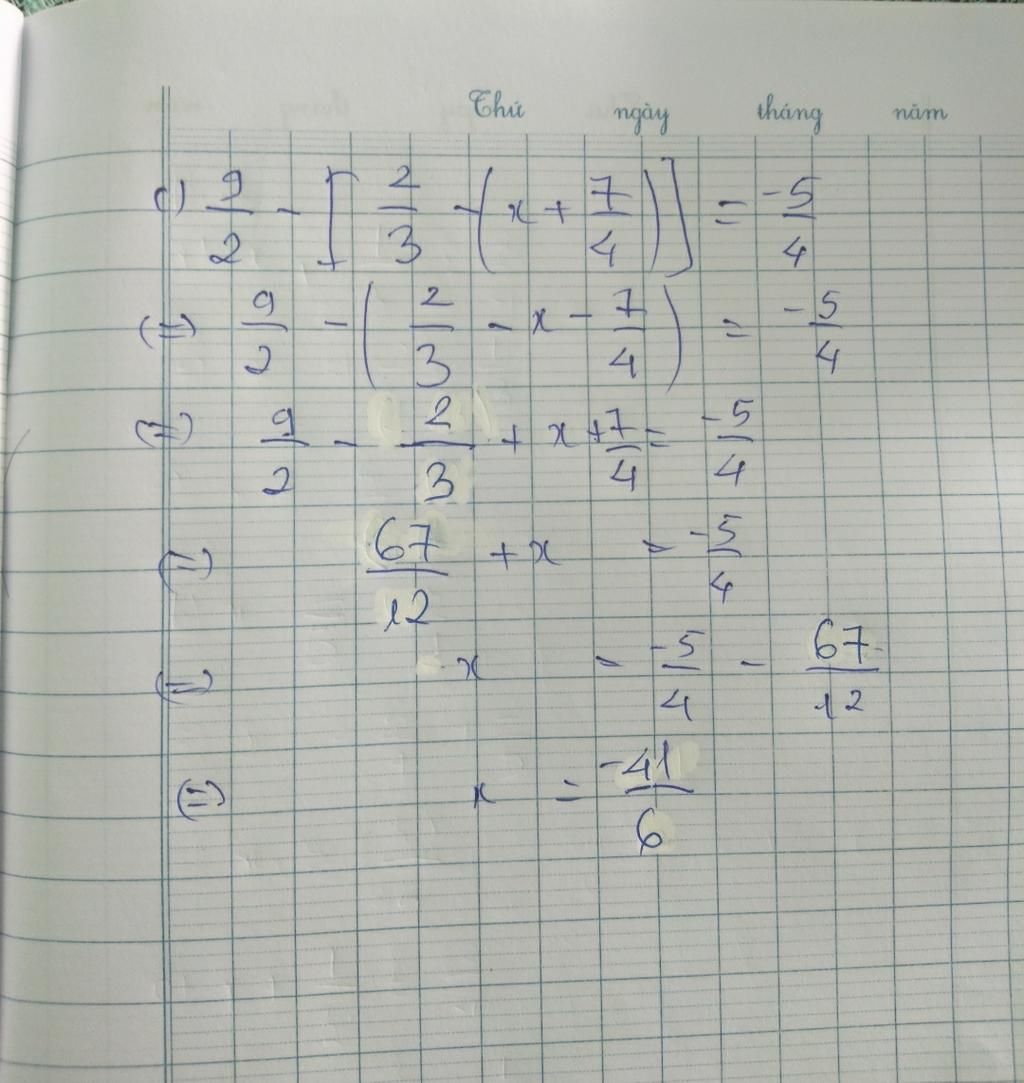 Thứ ngày tháng năm
c) 9/2 - [2/3 - (x + 7/4)] = -5/4
(=) 9/2 - (2/3 - x - 7/4) = -5/4
(=) 9/2 - 2/3 + x + 7/4 = -5/4
(=) 67/12 + x = -5/4
(=) x = -5/4 - 67/12
(=) x = -41/6